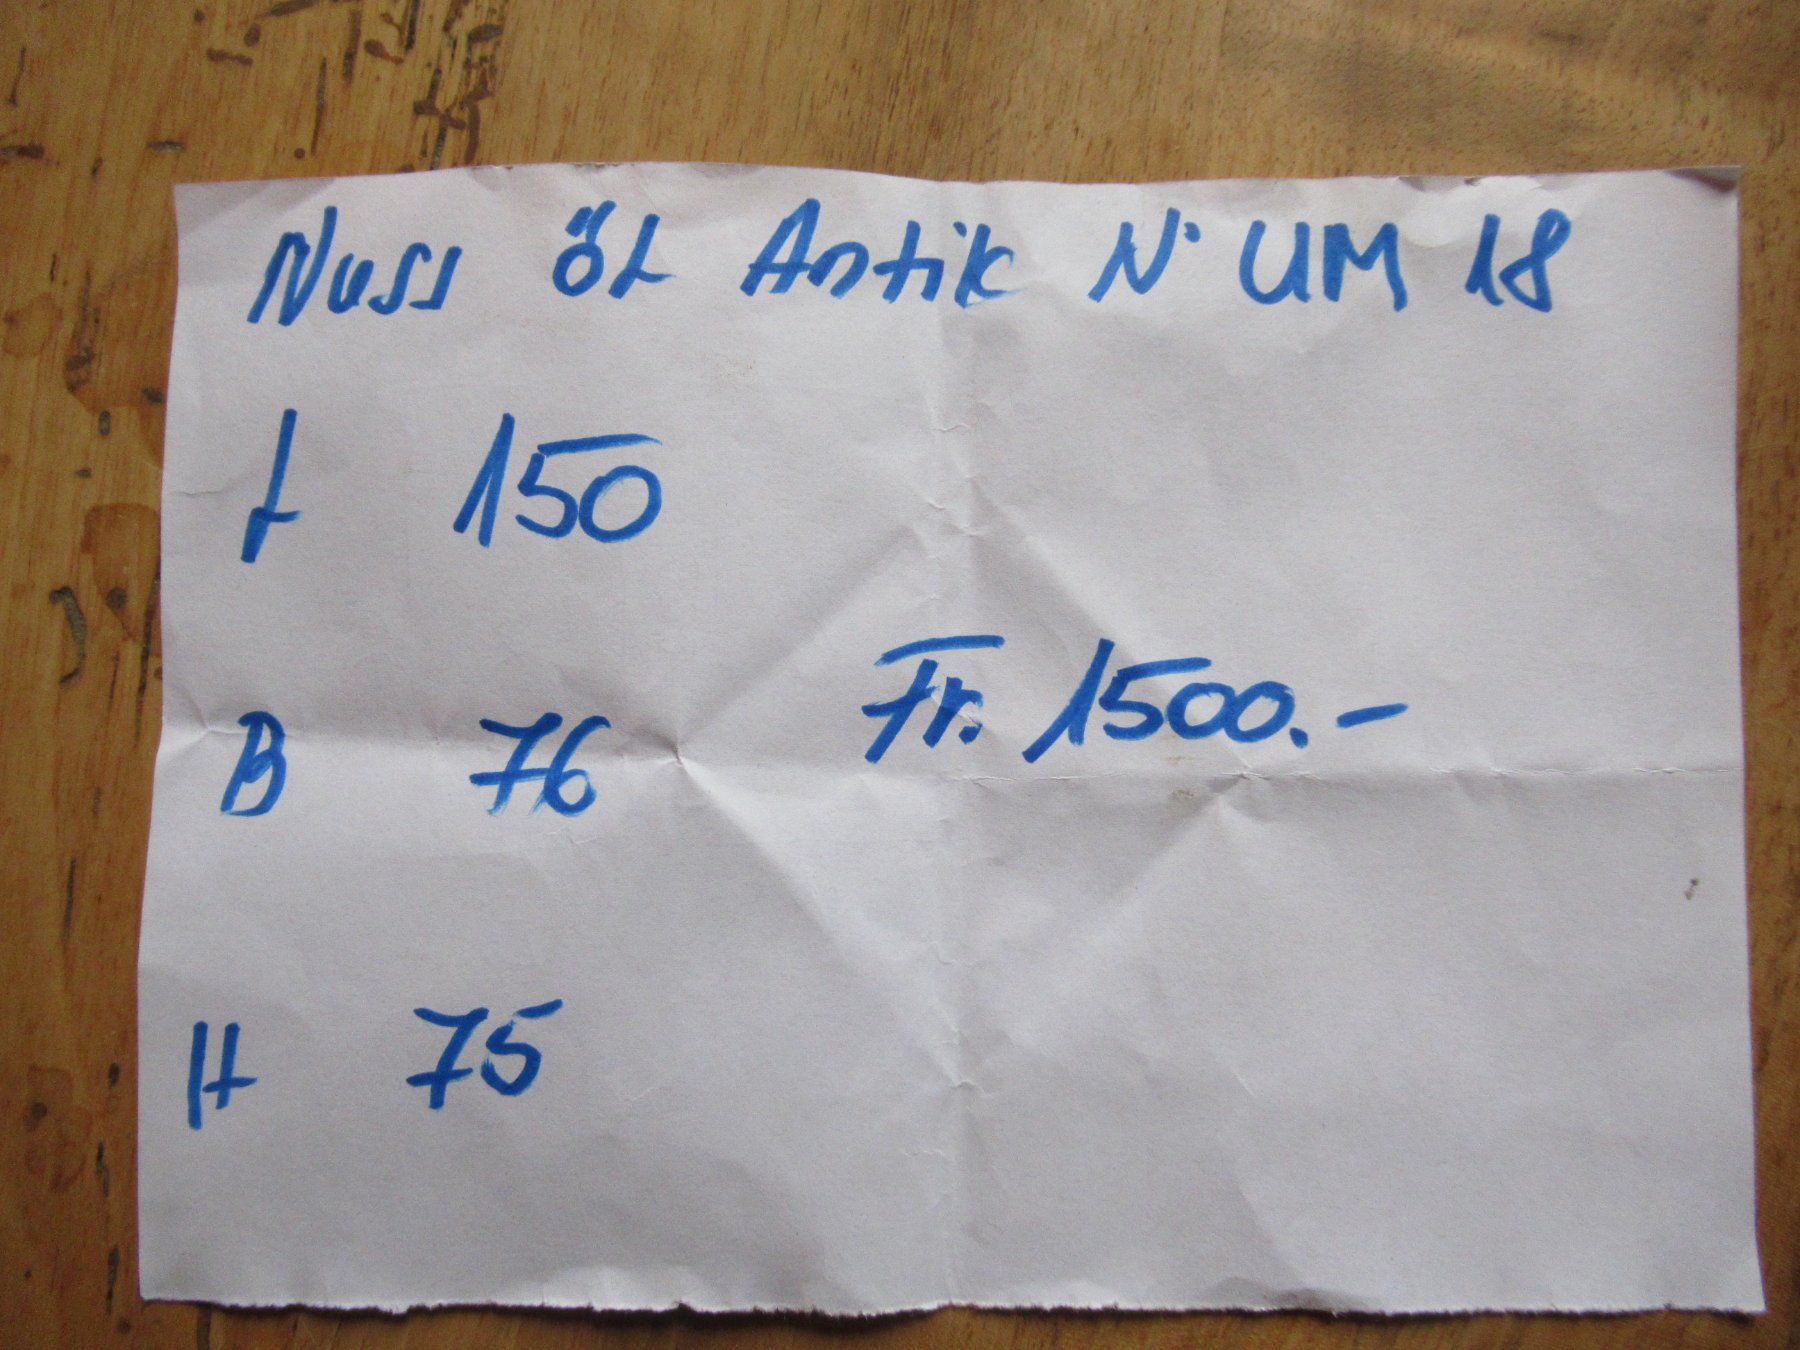 Nuss öL Antik N° UM 18
L 150
B 76
Fr. 1500.-
H 75